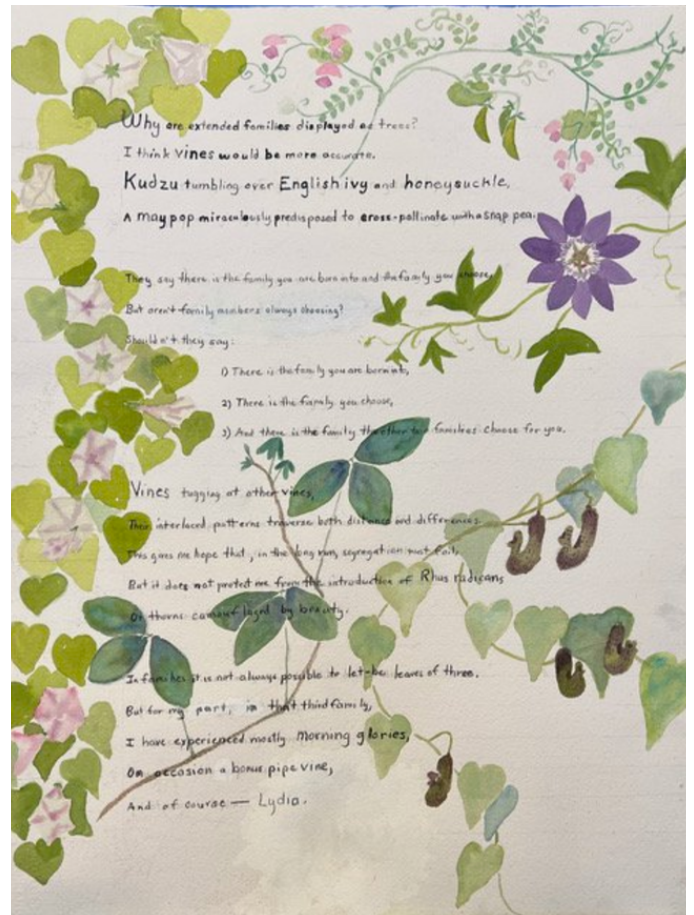 Why are extended families displayed as trees?
I think vines would be more accurate.
Kudzu tumbling over English ivy and honeysuckle,
A maypop miraculously predisposed to cross-pollinate with a snap pea.
They say there is the family you are born into and the family you choose,
But aren't family members always choosing?
Shouldn't they say:
1) There is the family you are born into,
2) There is the family you choose,
3) And there is the family the other two families choose for you.
Vines tugging at other vines,
Their interlaced patterns traverse both distance and differences.
This gives me hope that, in the long run, segregation must fail,
But it does not protect me from the introduction of Rhus radicans
Or thorns camouflaged by beauty.
In families it is not always possible to let-be leaves of three.
But for my part, in that third family,
I have experienced mostly morning glories,
On occasion a bonus pipe vine,
And of course — Lydia.